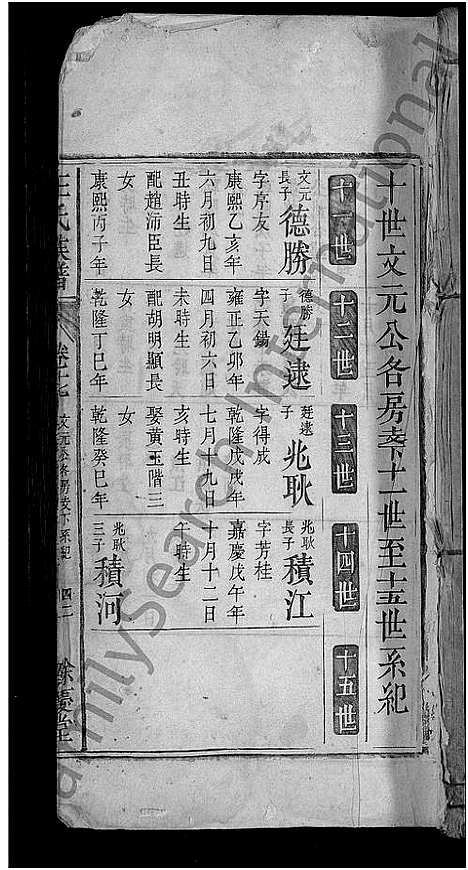 十世文元公各房支下十一世至十五世系紀
十一世
十二世
十三世
十四世
十五世
文元長子
德勝
字序友
康熙乙亥年
六月初九日
丑時生
配趙沛臣長
女
康熙丙子年
德勝子
廷逮
字天錫
雍正乙卯年
四月初六日
未時生
配胡明顯長
女
乾隆丁巳年
廷逮子
兆耿
字得成
乾隆戊戌年
七月十九日
亥時生
娶黄玉階三
女
乾隆癸巳年
兆耿長子
積江
字芳桂
嘉慶戊午年
十月十二日
午時生
兆耿三子
積河
王氏族譜
卷十七
文元公各房支下系紀
四二
餘慶堂
FamilySearch International